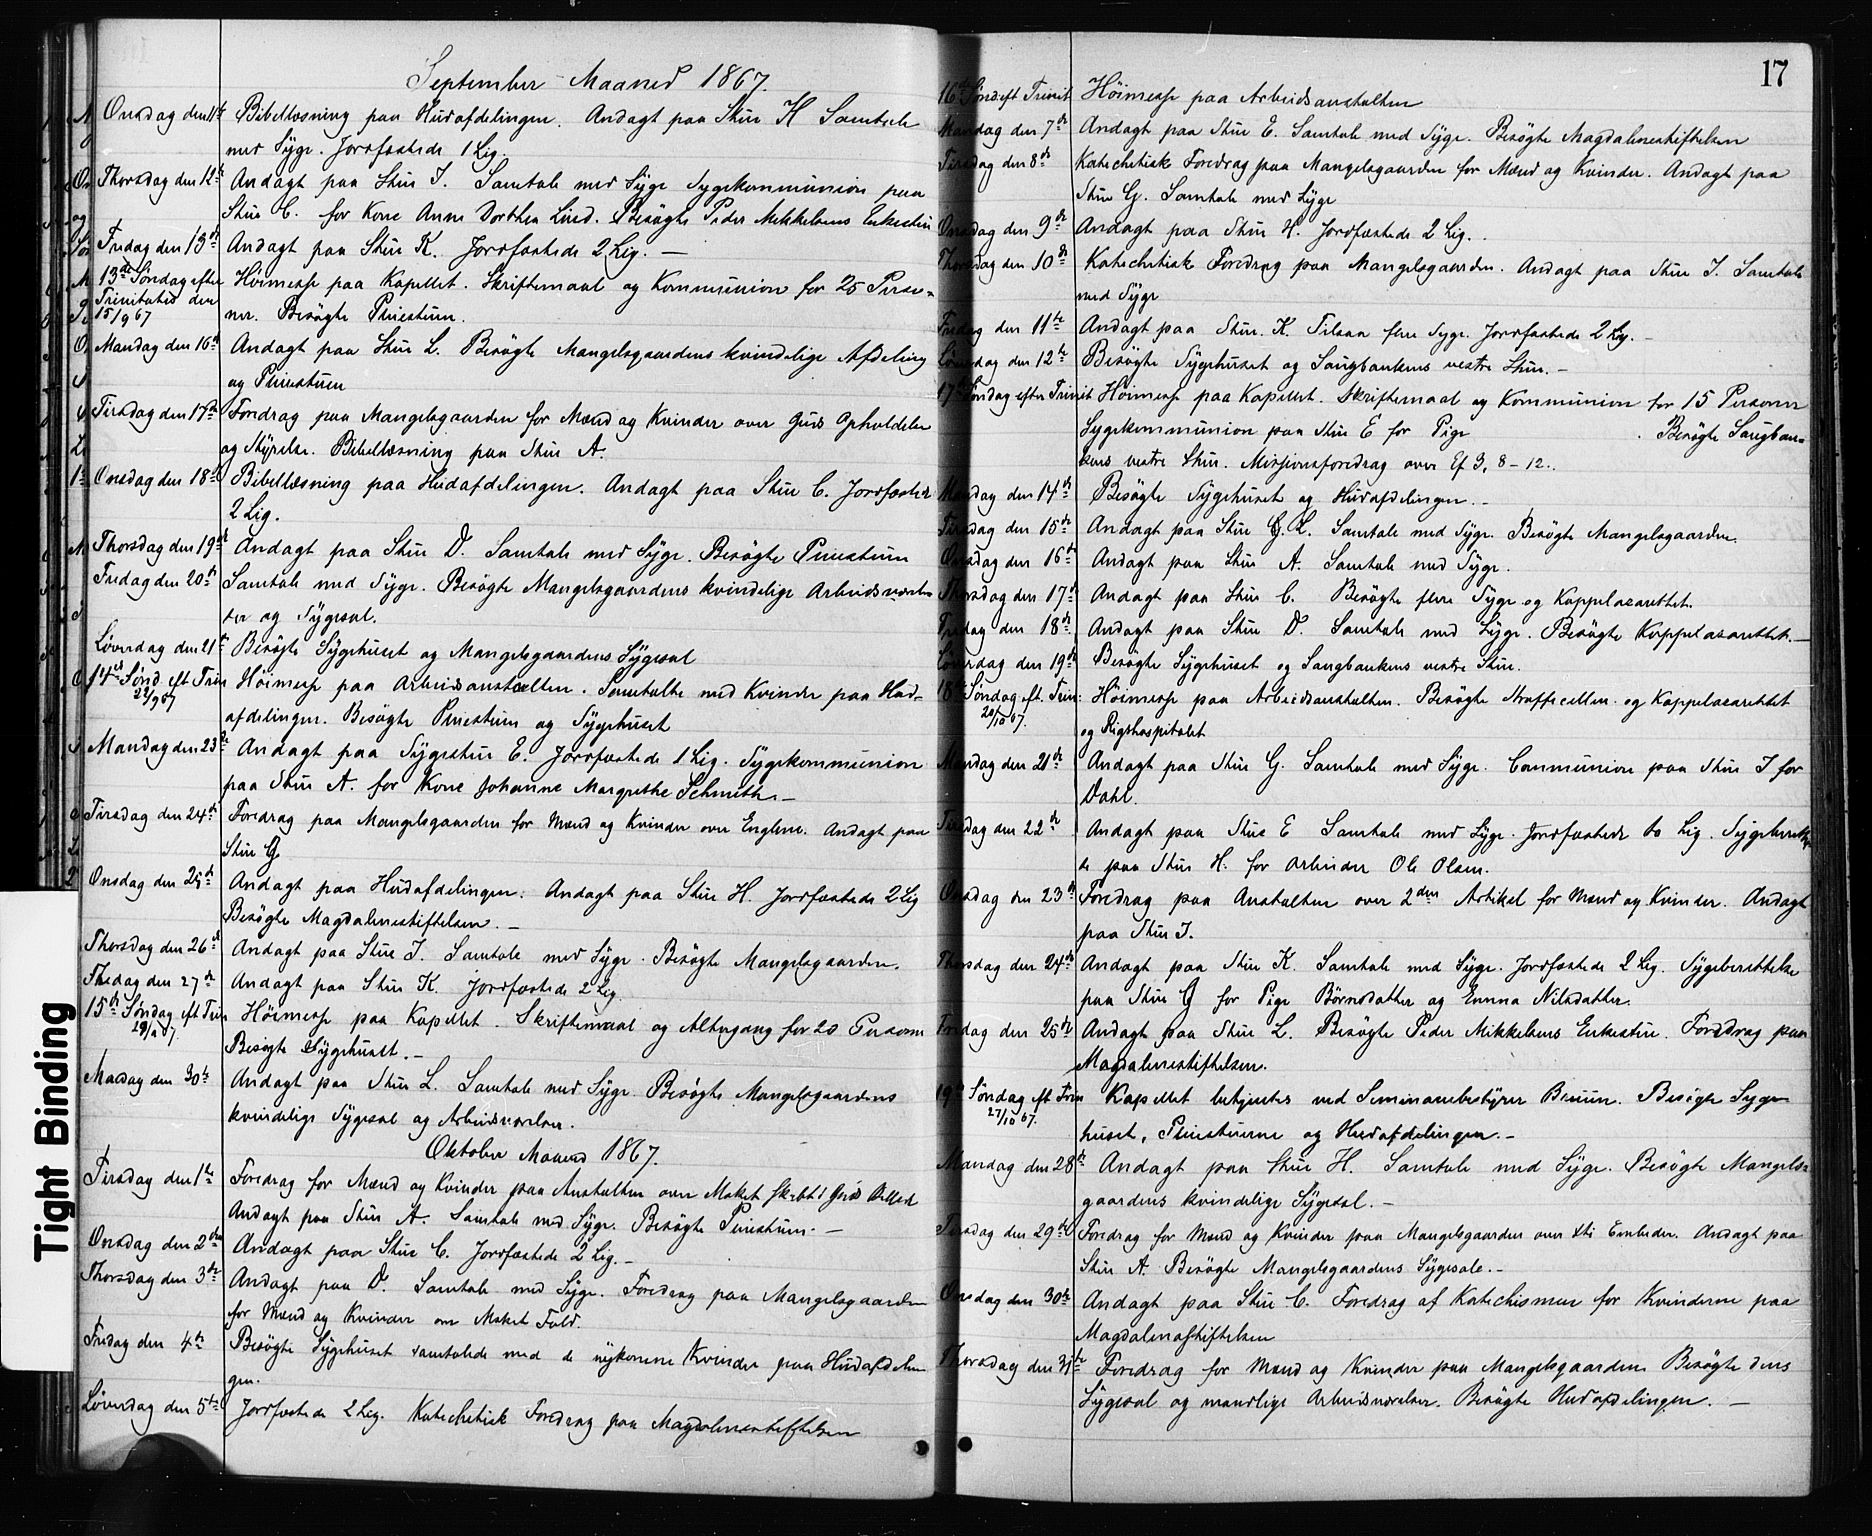 September Maaned 1867.
Onsdag den 11te Bibellæsning paa Hudafdelingen. Andagt paa Stue H Samtale
med Syge. Jordfæstede 1 Lig.
Thorsdag den 12te Andagt paa Stue I. Samtale med Syge Sygekommunion paa
Stue C. for Kone Anne Dorthea Lind. Besøgte Peder Mikkelsens Enkestue
Fredag den 13de Andagt paa Stue K. Jordfæstede 2 Lig. —
13de Søndag efter Høimesse paa Kapellet. Skriftemaal og Kommunion for 25 Perso-
Trinitatis den
15/9 67 ner. Besøgte Pleiestuen.
Mandag den 16de Andagt paa Stue L. Besøgte Mangelsgaardens kvindelige Afdeling
og Pleiestuen
Tirsdag den 17de Foredrag paa Mangelsgaarden for Mænd og Kvinder over Guds Opholdelse
og Styrelse. Bibellæsning paa Stue A.
Onsdag den 18de Bibellæsning paa Hudafdelingen. Andagt paa Stue C. Jordfæstede
2 Lig.
Thorsdag den 19de Andagt paa Stue D. Samtale med Syge. Besøgte Pleiestuen
Fredag den 20de Samtale med Syge. Besøgte Mangelsgaardens kvindelige Arbeidsværel-
ser og Sygesal.
Løverdag den 21de Besøgte Sygehuset og Mangelsgaardens Sygesal
14de Sønd. eft Trin Høimesse paa Arbeidsanstalten. Samtalte med Kvinder paa Hud-
22/9 67 afdelingen. Besøgte Pleiestuen og Sygehuset
Mandag den 23de Andagt paa Sygestue E. Jordfæstede 1 Lig. Sygekommunion
paa Stue A. for Kone Johanne Margrethe Schmith. —
Tirsdag den 24de Foredrag paa Mangelsgaarden for Mænd og Kvinder over Englene. Andagt paa
Stue G
Onsdag den 25de Andagt paa Hudafdelingen. Andagt paa Stue H. Jordfæstede 2 Lig
Besøgte Magdalenestiftelsen. —
Thorsdag den 26de Andagt paa Stue I. Samtale med Syge. Besøgte Mangelsgaarden.
Fredag den 27de Andagt paa Stue K. Jordfæstede 2 Lig.
15de Søndag eft Trin Høimesse paa Kapellet. Skriftemaal og Altergang for 20 Personer
29/9 67. Besøgte Sygehuset. —
Mandag den 30te Andagt paa Stue L. Samtale med Syge. Besøgte Mangelsgaardens
kvindelige Sygesal og Arbeidsværelser.
Oktober Maaned 1867.
Tirsdag den 1te Foredrag for Mænd og Kvinder paa Anstalten over Mskets Skabt i Guds Billed
Andagt paa Stue A. Samtale med Syge. Besøgte Pleiestuen. —
Onsdag den 2den Andagt paa Stue C. Jordfæstede 2 Lig. —
Thorsdag den 3de Andagt paa D. Samtale med Syge. Foredrag paa Mangelsgaarden
for Mænd og Kvinder om Mskets Fald.
Fredag den 4de Besøgte Sygehuset samtalede med de nykomne Kvinder paa Hudafdelin
gen.
Løverdag den 5te Jordfæstede 2 Lig. Katechetisk Foredrag paa Magdalenestiftelsen
17
16de Sønd. eft Trinit Høimesse paa Arbeidsanstalten
Mandag den 7de Andagt paa Stue E. Samtale med Syge. Besøgte Magdalenestiftelsen
Tirsdag den 8de Katechetisk Foredrag paa Mangelsgaarden for Mænd og Kvinder. Andagt paa
Stue G. Samtale med Syge
Onsdag den 9de Andagt paa Stue H. Jordfæstede 2 Lig.
Thorsdag den 10de Katechetisk Foredrag paa Mangelsgaarden. Andagt paa Stue I. Samtale
med Syge
Fredag den 11te Andagt paa Stue K. Tilsaa flere Syge. Jordfæstede 2 Lig. —
Løverdag den 12te Besøgte Sygehuset og Saugbankens vestre Stue. —
17de Søndag efter Trinit Høimesse paa Kapellet. Skriftemaal og Kommunion for 15 Personer
Sygekommunion paa Stue E for Pige . Besøgte Saugban-
kens vestre Stue. Missionsforedrag over Ef 3, 8-12.
Mandag den 14de Besøgte Sygehuset og Hudafdelingen. —
Tirsdag den 15de Andagt paa Stue G. L. Samtale med Syge. Besøgte Mangelsgaarden.
Onsdag den 16de Andagt paa Stue A. Samtale med Syge.
Thorsdag den 17de Andagt paa Stue C. Besøgte flere Syge og Koppelazarettet.
Fredag den 18de Andagt paa Stue D. Samtale med Syge. Besøgte Koppelazarettet. —
Løverdag den 19de Besøgte Sygehuset og Saugbankens vestre Stue.
18de Søndag eft. Trin: Høimesse paa Arbeidsanstalten. Besøgte Straffecellen og Koppelazarettet
20/10 67. og Rigshospitalet
Mandag den 21de Andagt paa Stue G. Samtale med Syge. Communion paa Stue I for
Dahl.
Tirsdag den 22de Andagt paa Stue E Samtale med Syge. Jordfæstede to Lig. Sygeberettel
se paa Stue H. for Arbeider Ole Olsen.
Onsdag den 23de Foredrag paa Anstalten over 2den Artikel for Mænd og Kvinder. Andagt
paa Stue I.
Thorsdag den 24de Andagt paa Stue K. Samtale med Syge. Jordfæstede 2 Lig. Sygeberettelse
paa Stue G for Pige Børnsdatter og Emma Nilsdatter.
Fredag den 25de Andagt paa Stue L. Besøgte Peder Mikkelsens Enkestue. Foredrag paa
Magdalenestiftelsen.
19de Søndag eft Trin Kapellet betjentes ved Seminariebestyrer Bruun. Besøgte Syge-
27/10 67. huset, Pleiestuerne og Hudafdelingen. —
Mandag den 28de Andagt paa Stue H. Samtale med Syge. Besøgte Mangels-
gaardens kvindelige Sygesal. —
Tirsdag den 29de Foredrag for Mænd og Kvinder paa Mangelsgaarden over Xti Embeder. Andagt paa
Stue A. Besøgte Mangelsgaardens Sygesale. —
Onsdag den 30te Andagt paa Stue C. Foredrag af Katechismen for Kvinderne paa
Magdalenastiftelsen
Thorsdag den 31te Foredrag for Mænd og Kvinder paa Mangelsgaarden Besøgte dens
Sygesal og mandlige Arbeidsværelser. Besøgte Hudafdelingen. —
Tight Binding